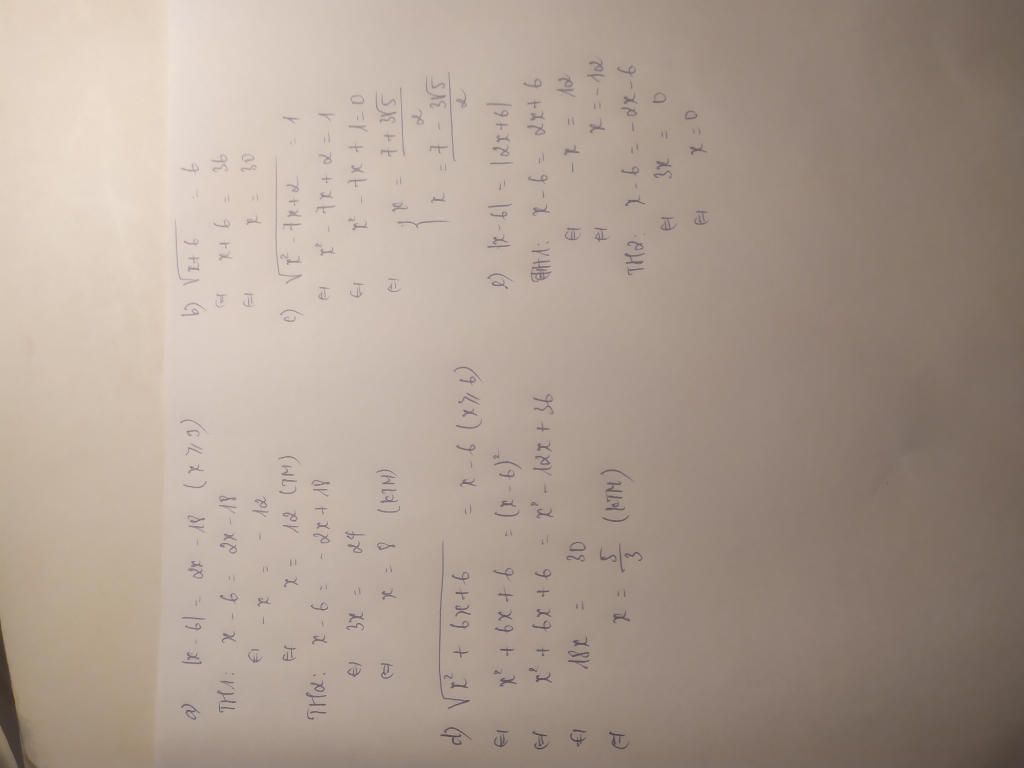 a) |x-6| = 2x - 18 (x ≥ 9)
TH1: x - 6 = 2x - 18
⇔ -x = -12
⇔ x = 12 (TM)
TH2: x - 6 = -2x + 18
⇔ 3x = 24
⇔ x = 8 (KTM)
d) √(x² + 6x + 6) = x - 6 (x ≥ 6)
⇔ x² + 6x + 6 = (x - 6)²
⇔ x² + 6x + 6 = x² - 12x + 36
⇔ 18x = 30
⇔ x = 5/3 (KTM)
b) √(x + 6) = 6
⇔ x + 6 = 36
⇔ x = 30
c) √(x² - 7x + 2) = 1
⇔ x² - 7x + 2 = 1
⇔ x² - 7x + 1 = 0
⇔ { x = (7 + 3√5)/2
x = (7 - 3√5)/2
e) |x - 6| = |2x + 6|
TH1: x - 6 = 2x + 6
⇔ -x = 12
⇔ x = -12
TH2: x - 6 = -2x - 6
⇔ 3x = 0
⇔ x = 0